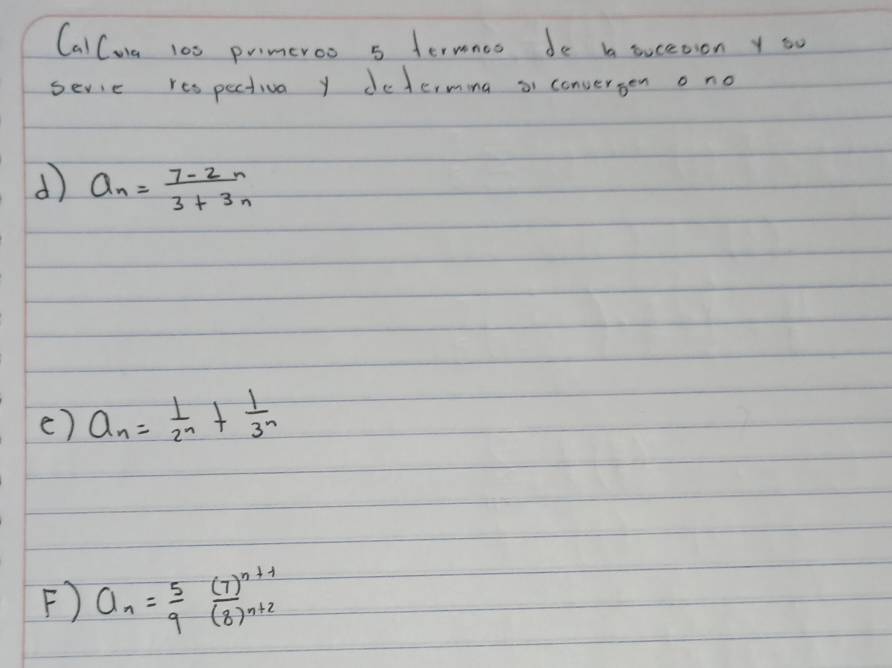 Calcula los primeros 5 terminos de la sucesion y su
serie respectiva y determina si convergen o no
d) aₙ = 7-2n / 3+3n
e) aₙ = 1/2ⁿ + 1/3ⁿ
F) aₙ = 5/9 (7)ⁿ⁺¹/(8)ⁿ⁺²